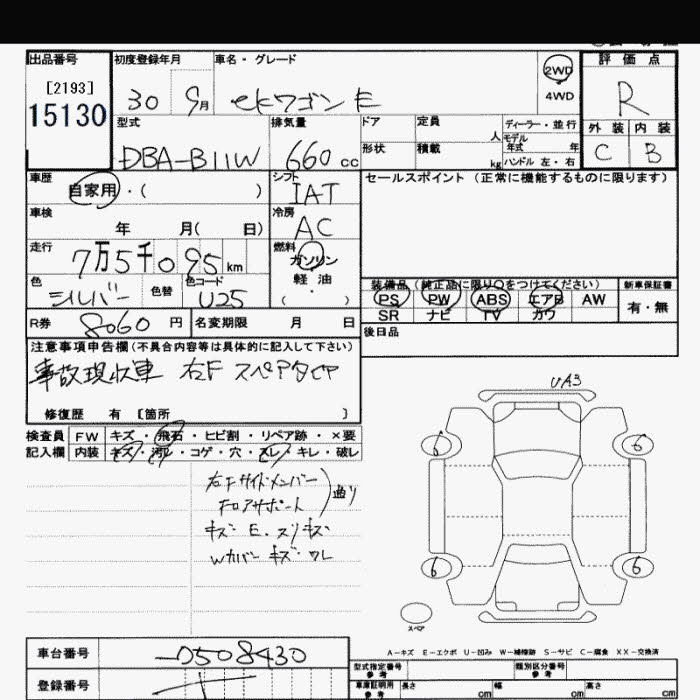 出品番号 初度登録年月 車名・グレード 評価点
[2193]
15130
30 9月 ekワゴン E
2WD
4WD
R
型式 排気量 ドア 定員 人 ディーラー・並行
モデル年式 年
外装 内装
DBA-B11W 660cc 形状 積載 kg ハンドル 左・右
C B
車歴 シフト セールスポイント (正常に機能するものに限ります)
自家用・( ) IAT
車検 冷房
年 月( 日) AC
走行 燃料
7万5千095km ガソリン
色 色替 色コード 軽油
シルバー U25 ( ・ )
装備品(純正品に限り○をつけてください) 新車保証書
PS PW ABS エアB AW 有・無
SR ナビ TV カワ
R券 8060円 名変期限 月 日 後日品
注意事項申告欄(不具合内容等は具体的に記入して下さい)
事故現状車 右F スペアタイヤ
修復歴 有 [箇所 ]
検査員 FW キズ・飛石・ヒビ割・リペア跡・×要
記入欄 内装 キズ・汚レ・コゲ・穴・スレ・キレ・破レ
UA3
6 6
右Fサイドメンバー
フロアサポート
曲り
キズ E. スリキズ
Wカバー キズ・ワレ
6 6
スペア
A-キズ E-エクボ U-凹み W-補修跡 S-サビ C-腐食 XX-交換済
車台番号 -0508430
型式指定番号 参考 類別区分番号 参考
登録番号
車庫証明用 参考 長さ cm 幅 cm 高さ cm